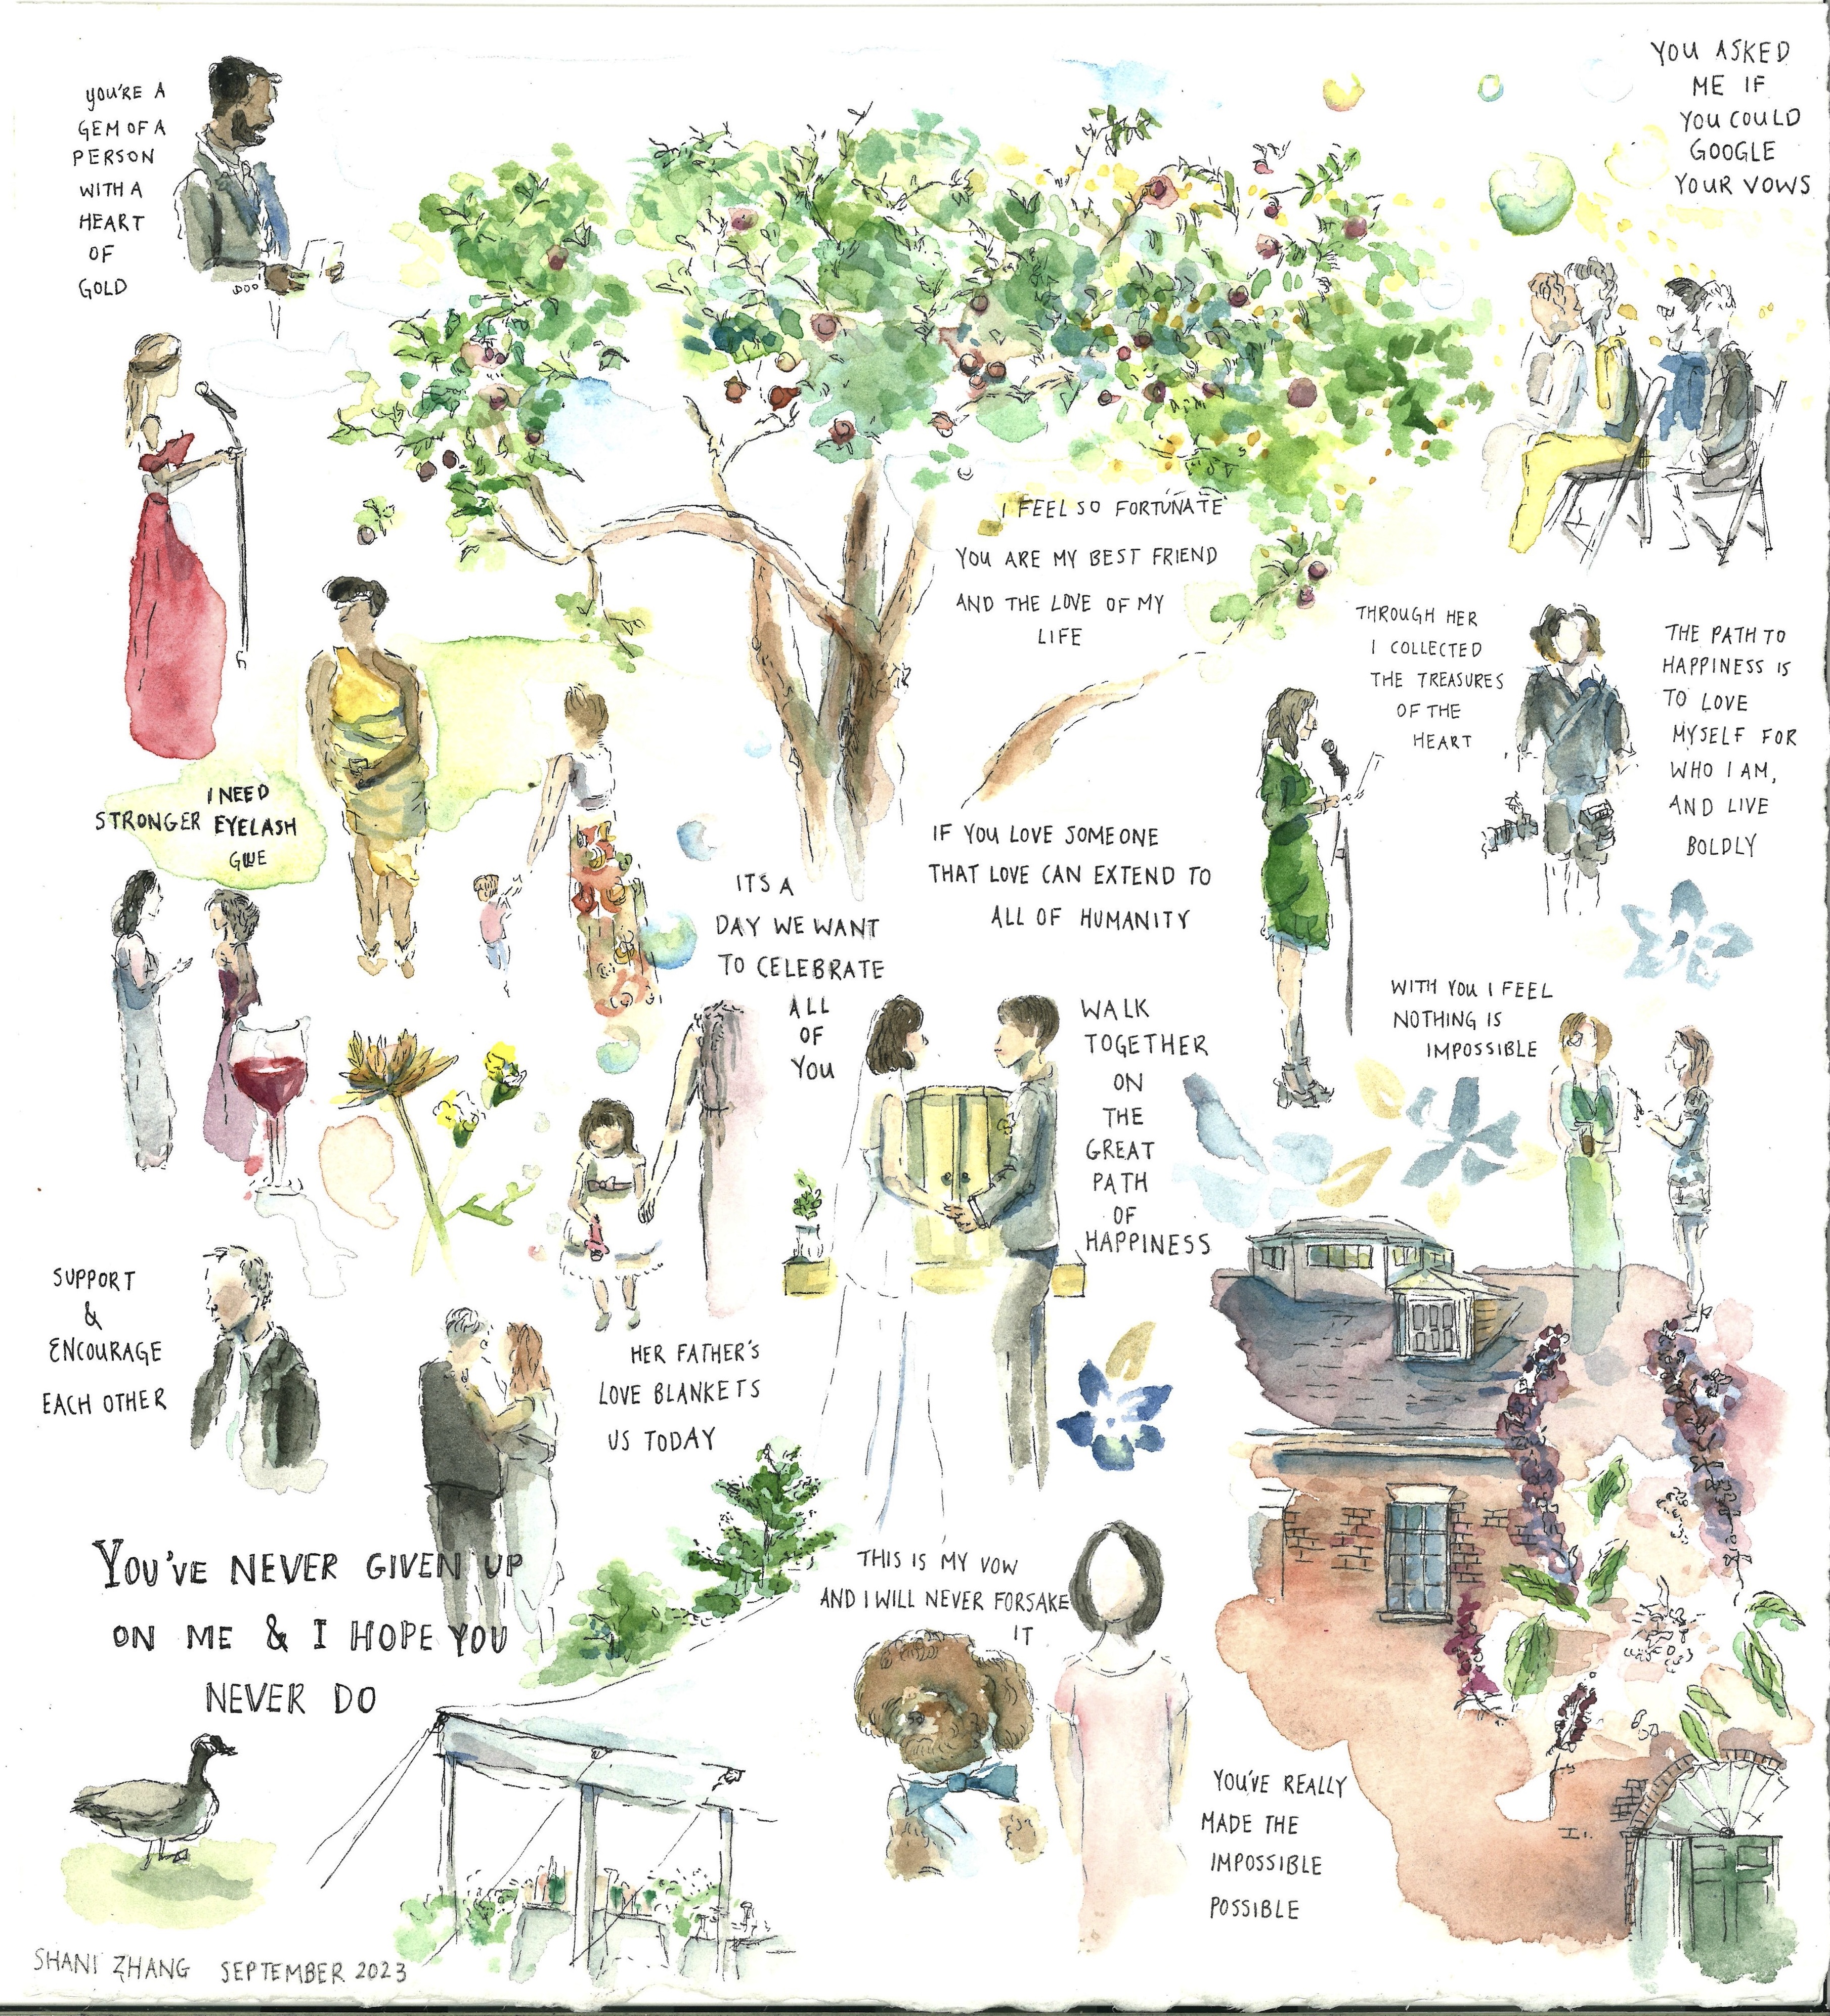 YOU'RE A
GEM OF A
PERSON
WITH A
HEART
OF
GOLD
YOU ASKED
ME IF
YOU COULD
GOOGLE
YOUR VOWS
I FEEL SO FORTUNATE
YOU ARE MY BEST FRIEND
AND THE LOVE OF MY
LIFE
THROUGH HER
I COLLECTED
THE TREASURES
OF THE
HEART
THE PATH TO
HAPPINESS IS
TO LOVE
MYSELF FOR
WHO I AM,
AND LIVE
BOLDLY
I NEED
STRONGER EYELASH
GLUE
IF YOU LOVE SOMEONE
THAT LOVE CAN EXTEND TO
ALL OF HUMANITY
ITS A
DAY WE WANT
TO CELEBRATE
ALL
OF
YOU
WALK
TOGETHER
ON
THE
GREAT
PATH
OF
HAPPINESS
WITH YOU I FEEL
NOTHING IS
IMPOSSIBLE
SUPPORT
&
ENCOURAGE
EACH OTHER
HER FATHER'S
LOVE BLANKETS
US TODAY
YOU'VE NEVER GIVEN UP
ON ME & I HOPE YOU
NEVER DO
THIS IS MY VOW
AND I WILL NEVER FORSAKE
IT
YOU'VE REALLY
MADE THE
IMPOSSIBLE
POSSIBLE
SHANI ZHANG SEPTEMBER 2023